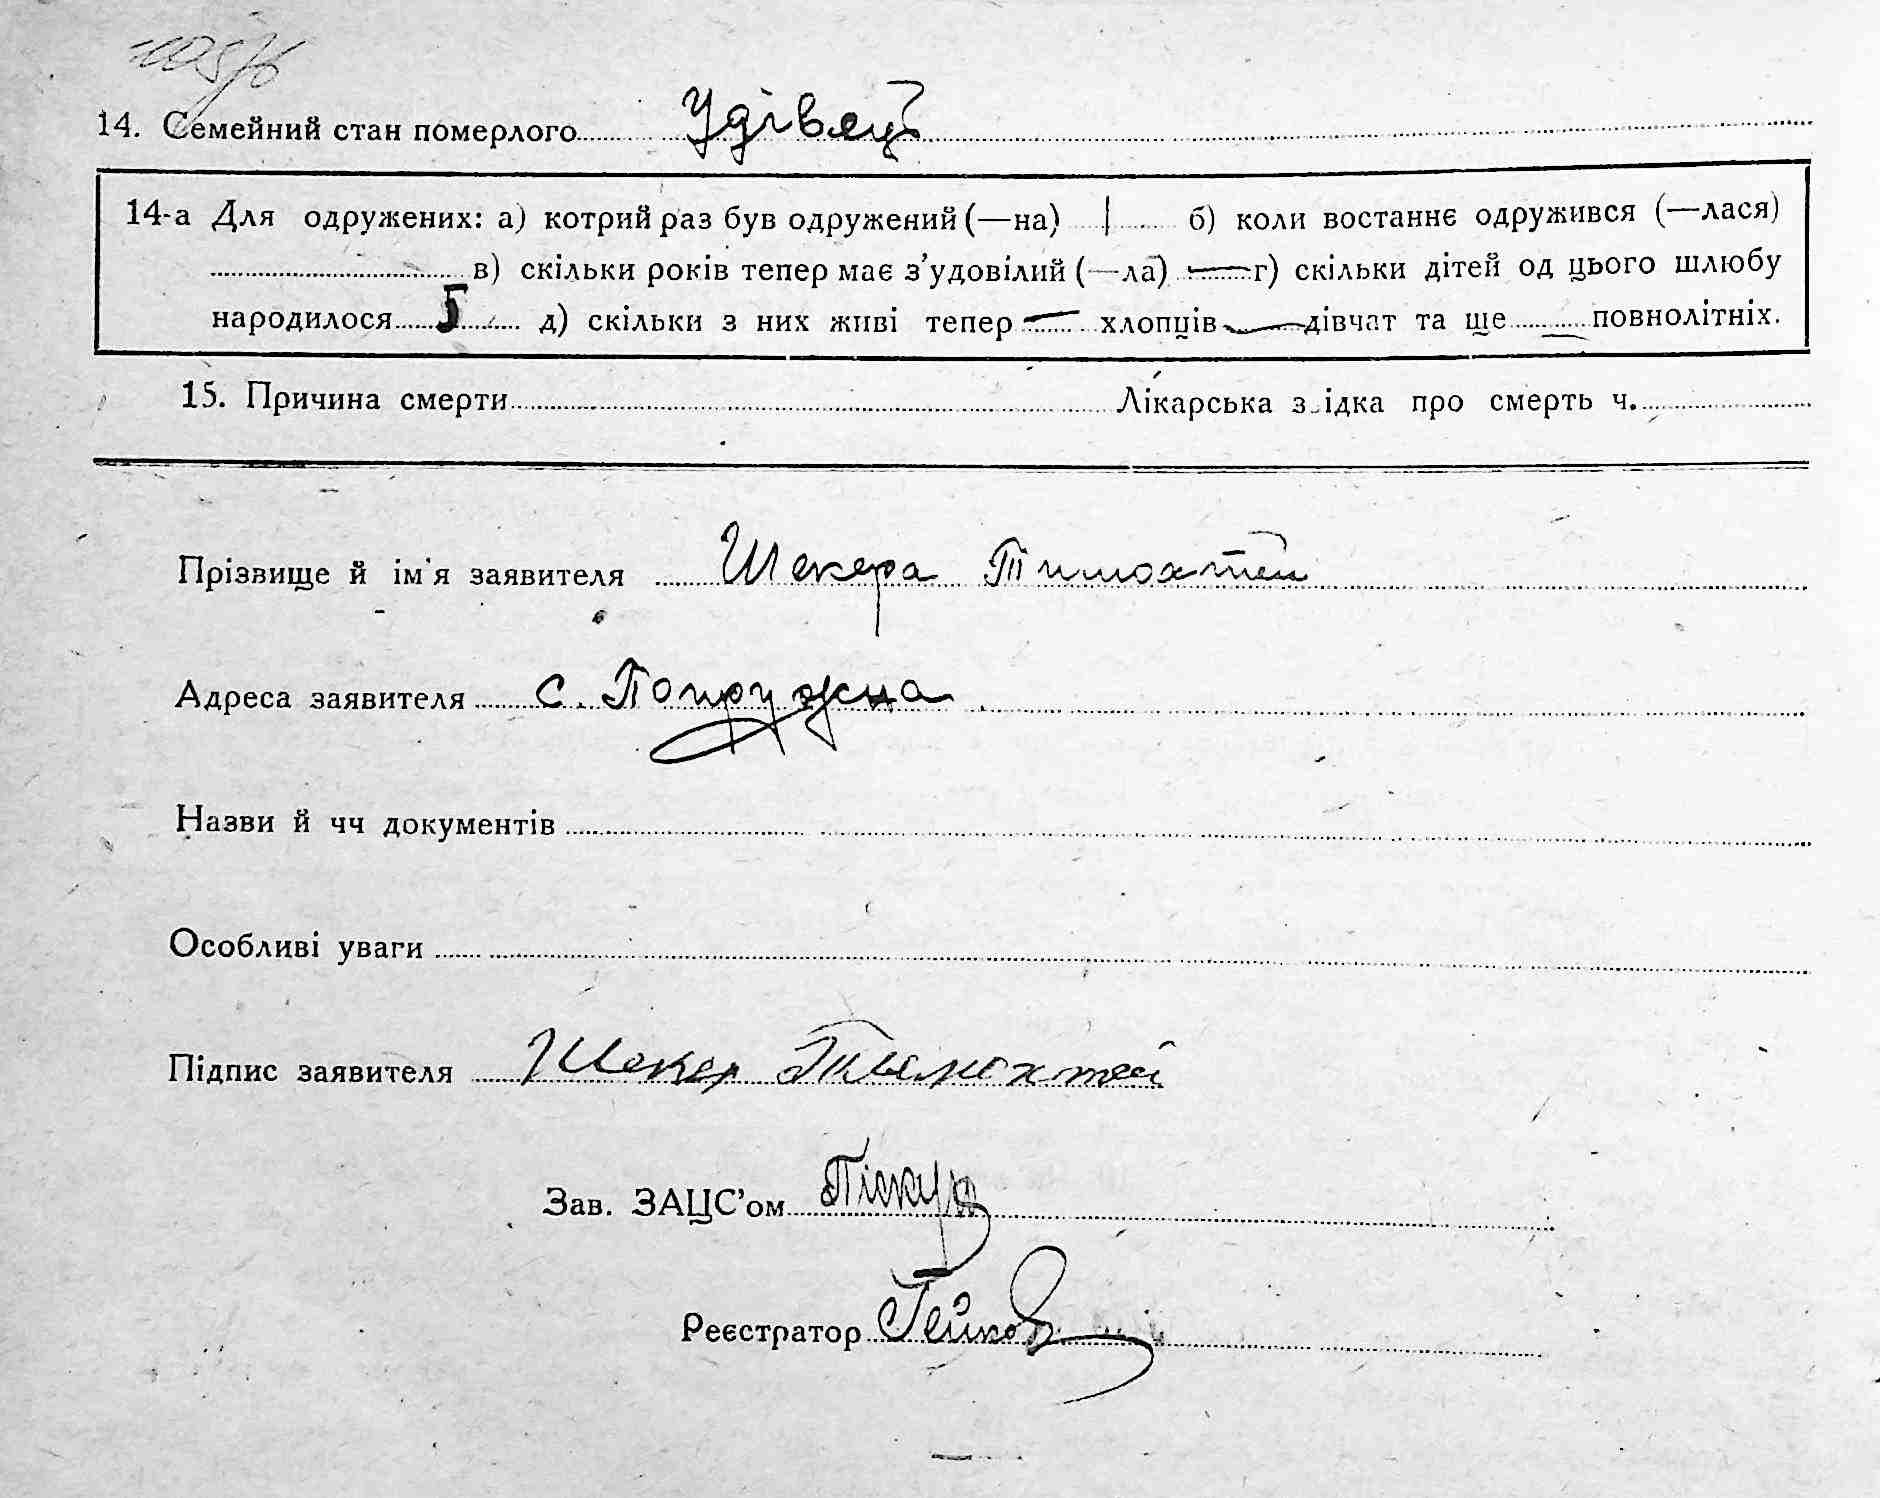 14. Семейний стан померлого Удівец
14-а Для одружених: а) котрий раз був одружений (—на) | б) коли востаннє одружився (—лася)
в) скільки років тепер має з’удовілий (—ла) — г) скільки дітей од цього шлюбу
народилося 5 д) скільки з них живі тепер — хлопців — дівчат та ще — повнолітніх.
15. Причина смерти Лікарська з ідка про смерть ч.
Прізвище й ім'я заявителя Шекера Тімохтей
Адреса заявителя с. Попружна
Назви й чч документів
Особливі уваги
Підпис заявителя Шекер Тимохтей
Зав. ЗАЦС’ом
Реєстратор